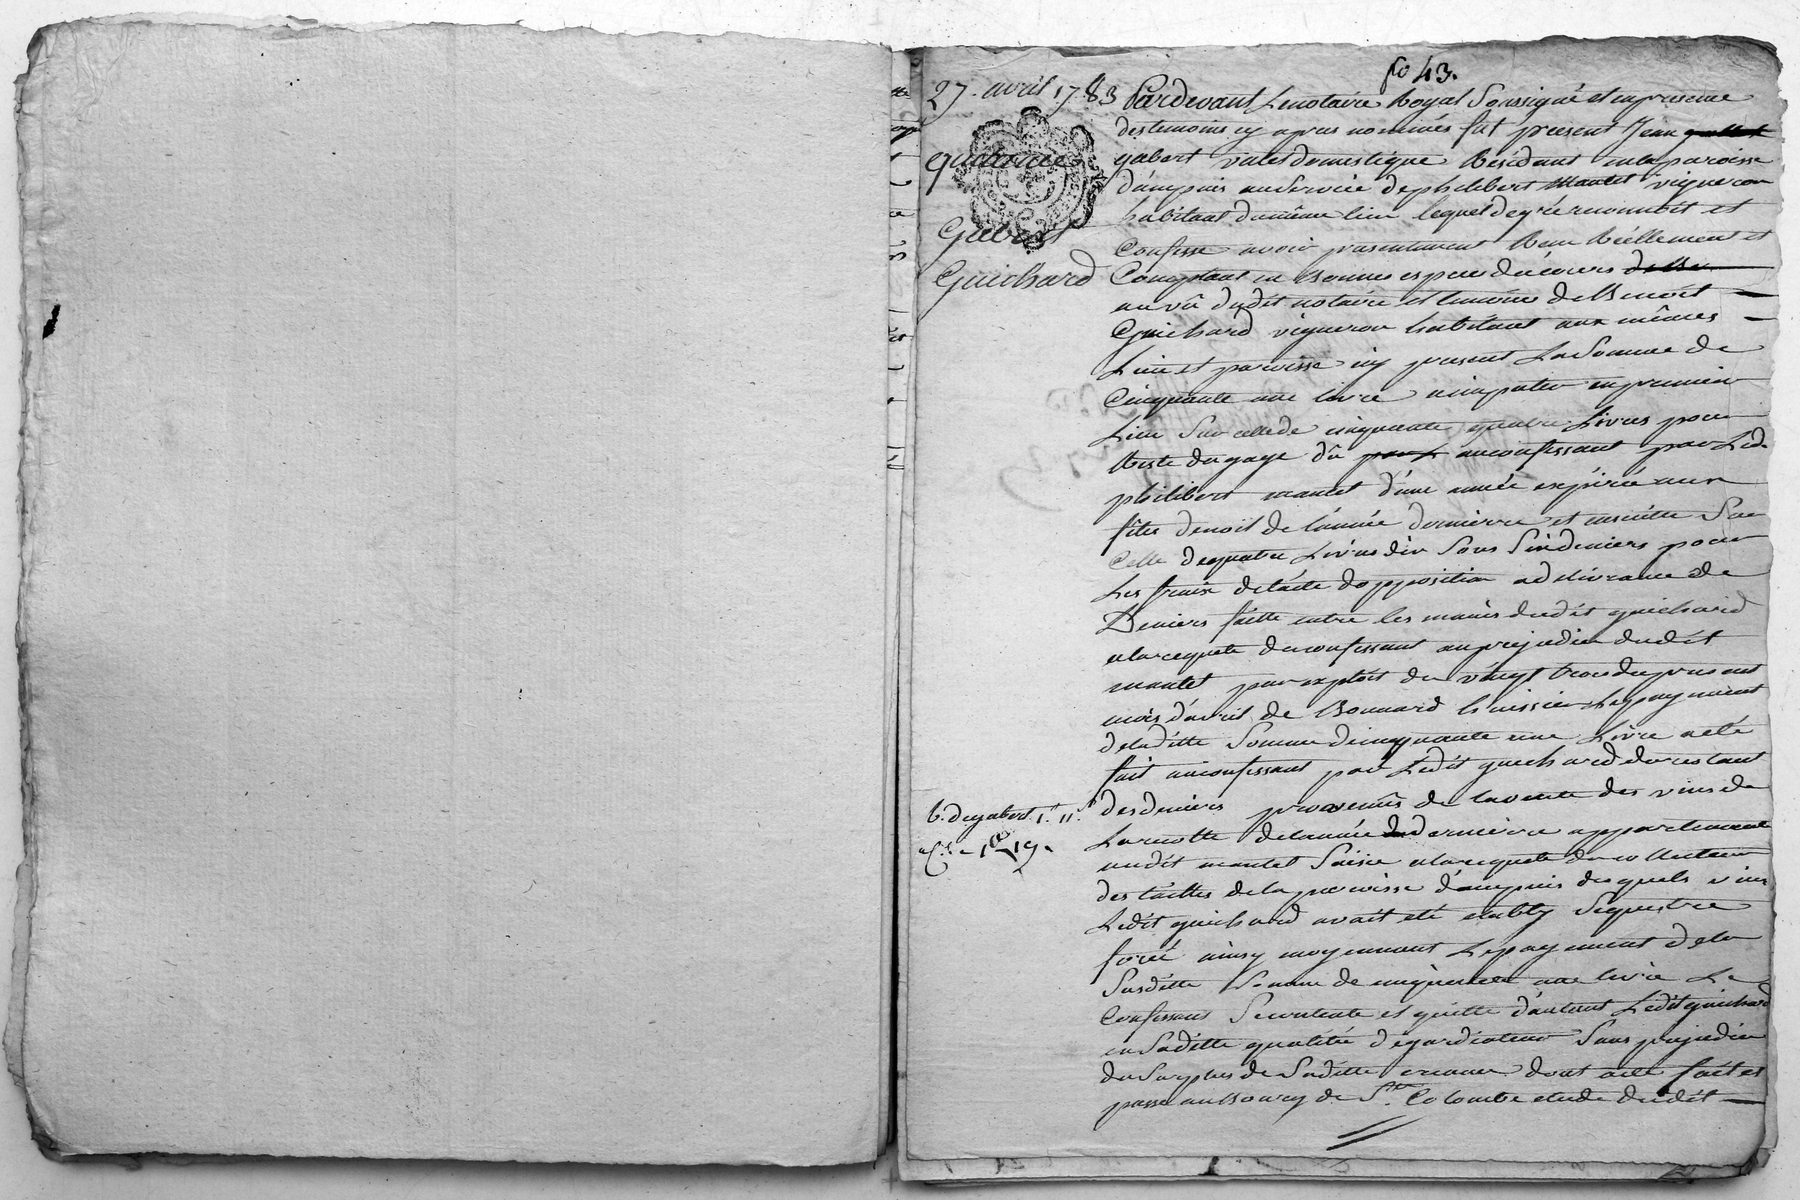 fo 43.
27. avril 1783
quittance
Gabert
Guichard
Pardevant Lenotaire Royal Soussigné et enpresence
destemoins cy apres nommés fut present Jean
gabert valet domestique Residant enlaparoisse
d'ampuis auService dephilibert mantet vigneron
habitant dumême lieu lequel degré reconnoit et
Confesse avoir presentement Reçu Réellement et
Comptant en Bonnes especes du cours
au vû dudit notaire et temoins de Benoit
Guichard vigneron habitant aux mêmes
Lieu et paroisse icy present LaSomme de
Cinquante une livre a imputer enpremier
Lieu Sur cellede cinquante quatre Livres pour
Reste dugage dû auconfessant par Led.
philibert mantet d'une année expirée aux
fêtes denoël de l'année derniere et ensuitte Sur
Celle dequatre Livres dix Sous Six deniers pour
Les fraix del'acte d'opposition adelivrance de
Deniers faitte entre les mains dudit guichard
alarequete duconfessant auprejudice dudit
mantet par exploit du vingt trois dupresent
mois d'avril de Bonnard huissier Lepayement
deladitte Somme decinquante une Livre aeté
fait auconfessant par Ledit guichard
desdeniers provenûs de lavente des vins de
Larecolte delannée derniere appartenants
audit mantet Saisie alarequete du collecteur
des tailles de laparoisse d'ampuis desquels vins
Ledit guichard avait eté etably Sequestre
forcé ainsy moyennant Lepayement dela
Susditte Somme de cinquante une livre Le
Confessant Secontente et quitte d'autant Leditguichard
en Saditte qualité degardiateur Sans prejudice
du Surplus de Saditte creance dont acte fait et
passé auBourg de Ste. Colombe etude dudit
b. degabert 1.# 11.s